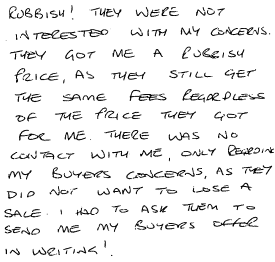 RUBBISH! THEY WERE NOT
INTERESTED WITH MY CONCERNS.
THEY GOT ME A RUBBISH
PRICE, AS THEY STILL GET
THE SAME FEES REGARDLESS
OF THE PRICE THEY GOT
FOR ME. THERE WAS NO
CONTACT WITH ME, ONLY REGARDING
MY BUYERS CONCERNS, AS THEY
DID NOT WANT TO LOSE A
SALE. I HAD TO ASK THEM TO
SEND ME MY BUYERS OFFER
IN WRITING!